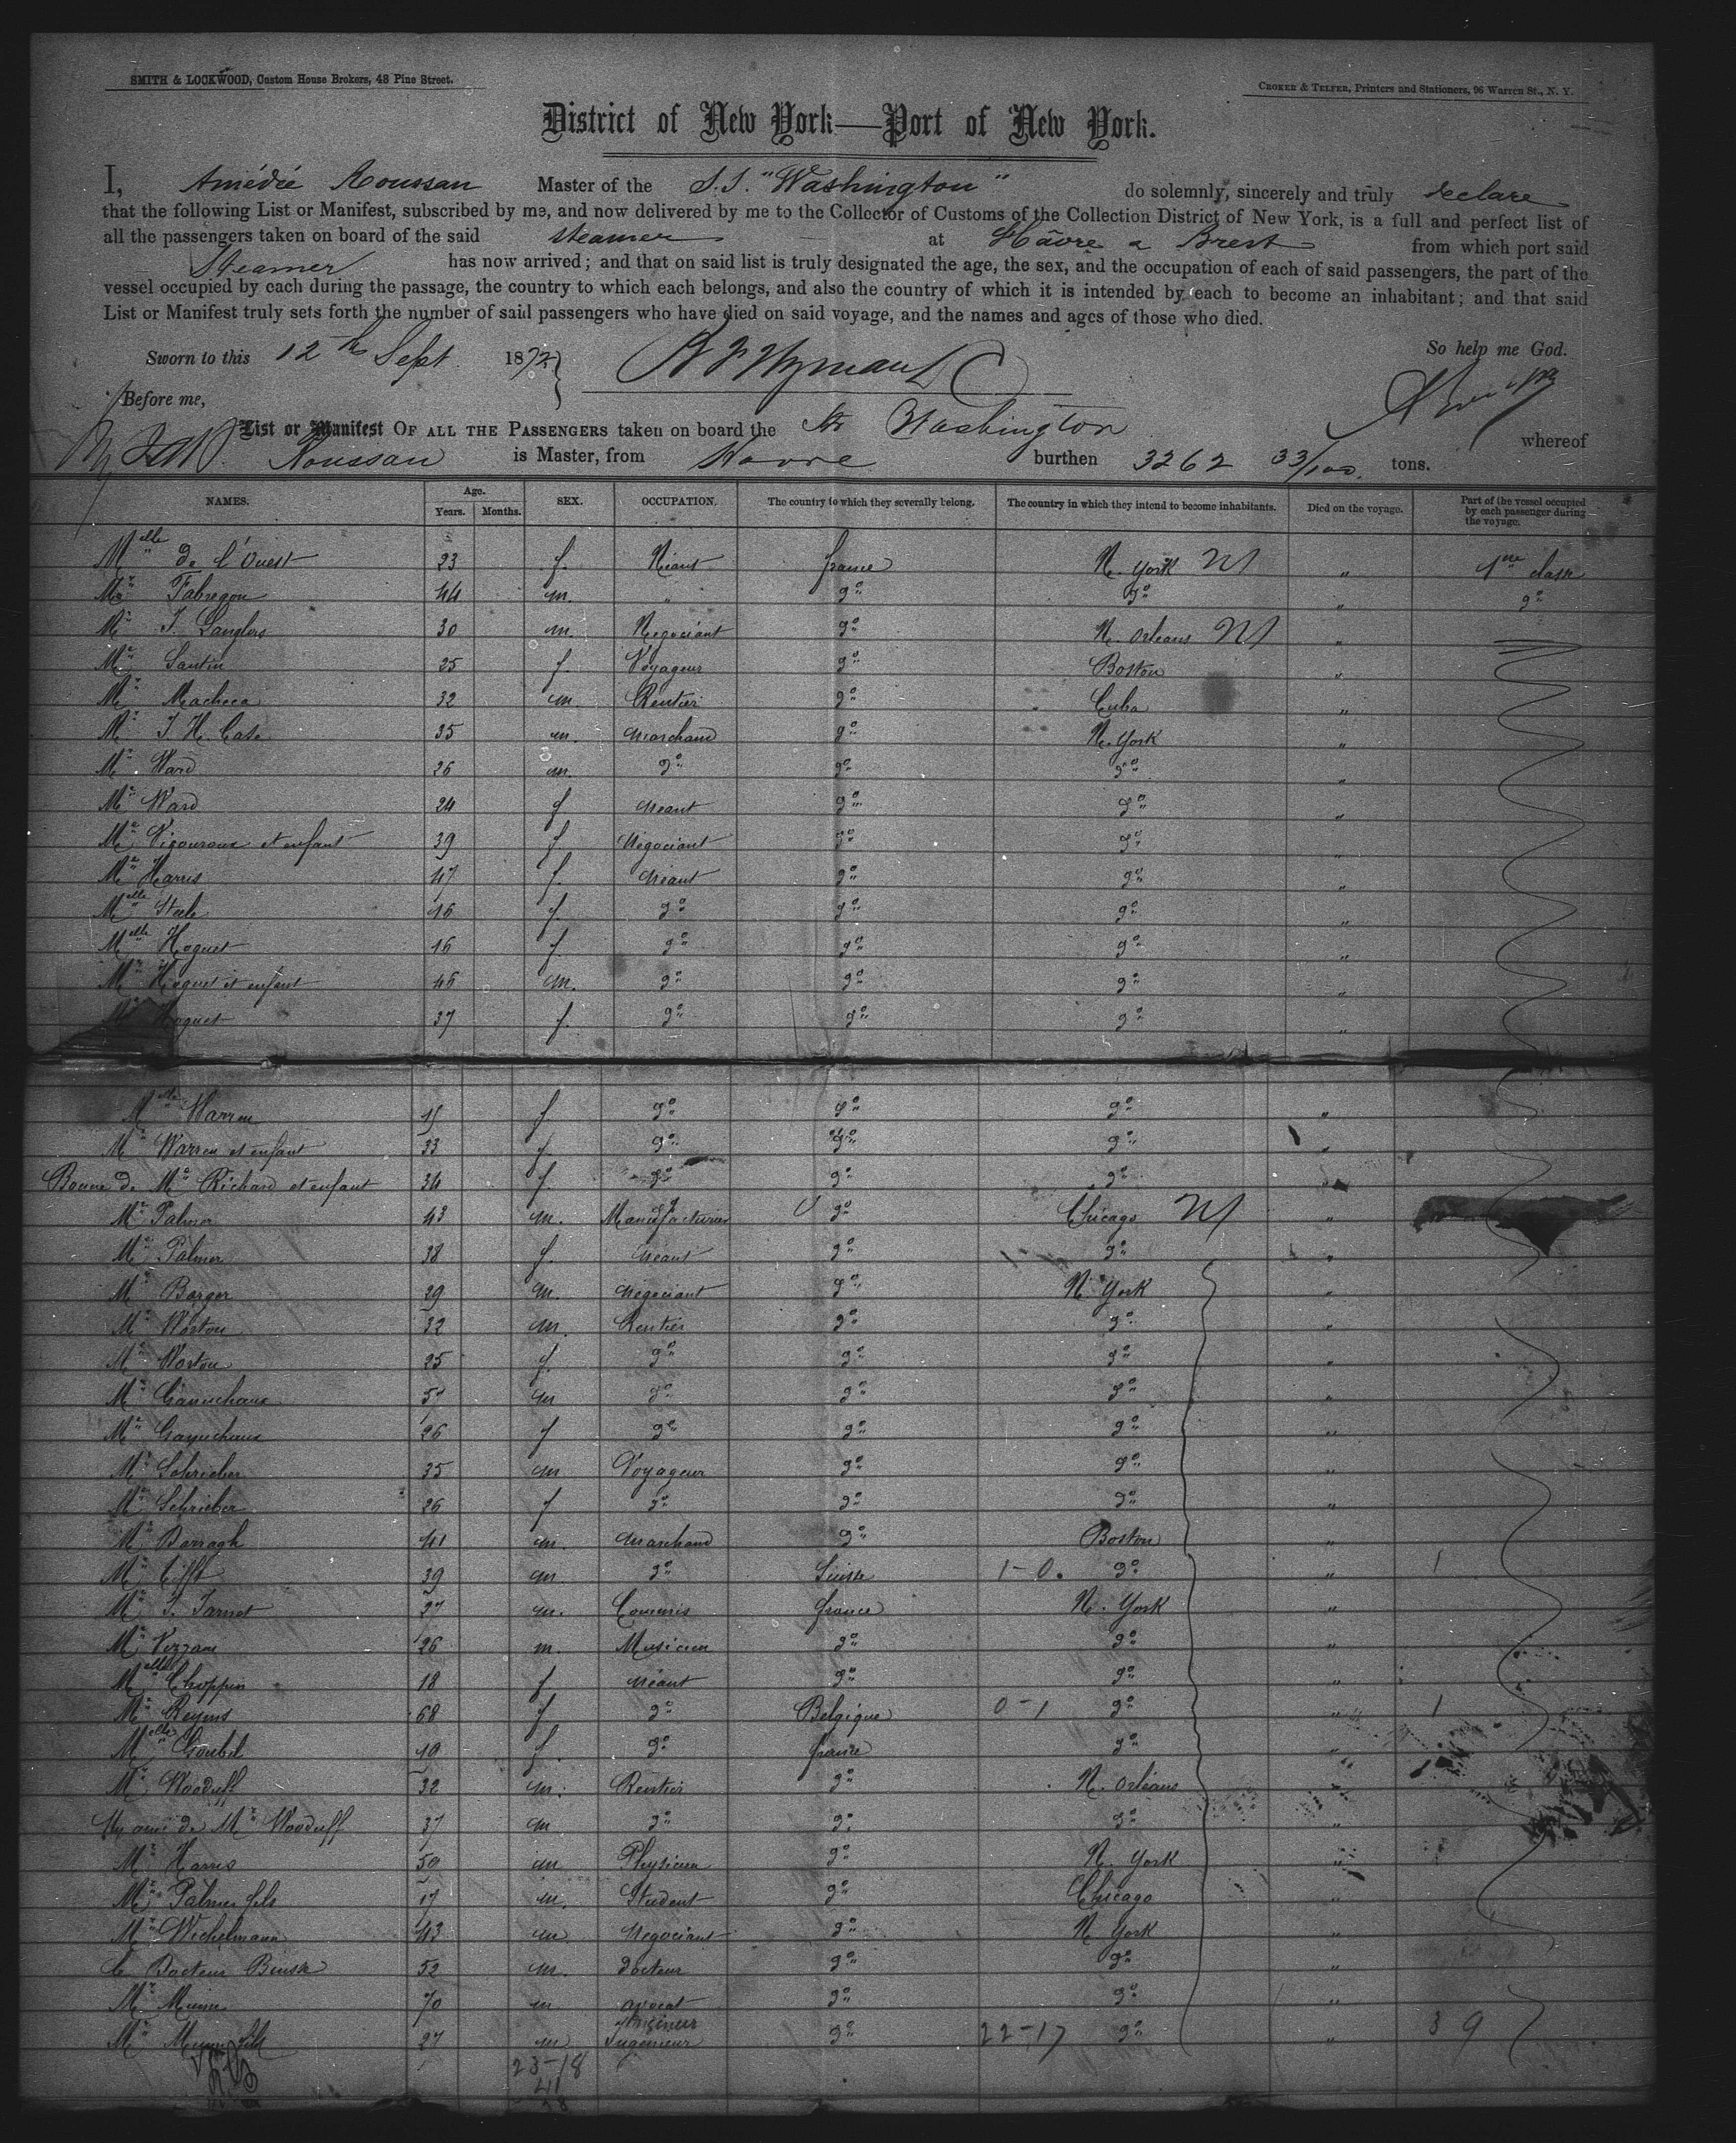 SMITH & LOCKWOOD, Custom House Brokers, 48 Pine Street.
CROKER & TELFER, Printers and Stationers, 96 Warren St., N. Y.
District of New York—Port of New York.
I, Amédée Roussan Master of the S.S. "Washington" do solemnly, sincerely and truly declare
that the following List or Manifest, subscribed by me, and now delivered by me to the Collector of Customs of the Collection District of New York, is a full and perfect list of
all the passengers taken on board of the said steamer at Hâvre a Brest from which port said
Steamer has now arrived; and that on said list is truly designated the age, the sex, and the occupation of each of said passengers, the part of the
vessel occupied by each during the passage, the country to which each belongs, and also the country of which it is intended by each to become an inhabitant; and that said
List or Manifest truly sets forth the number of said passengers who have died on said voyage, and the names and ages of those who died.
Sworn to this 12th Sept. 1872 So help me God.
Before me,
List or Manifest OF ALL THE PASSENGERS taken on board the Str Washington whereof
Roussan is Master, from Havre burthen 3262 33/100 tons.
NAMES. Age. Years. Months. SEX. OCCUPATION. The country to which they severally belong. The country in which they intend to become inhabitants. Died on the voyage. Part of the vessel occupied by each passenger during the voyage.
Melle de l'Ouest 23 f. Néant france N. York " 1ere classe
Mr Fabregou 44 m. " do do " do
Mr J. Langlois 30 m. Négociant do N. Orleans "
Me Santin 25 f. Voyageur do Boston "
Mr Macheca 32 m. Rentier do Cuba "
Mr J. H. Case 35 m. Marchand do N. York "
Mr Ward 26 m. do do do "
Me Ward 24 f Néant do do "
Me Vigouroux et enfant 39 f. Négociant do do "
Me Harris 47 f. Néant do do "
Melle Steele 16 f. do do do "
Melle Hoguet 16 f. do do do "
Mr Hoguet et enfant 46 m. do do do "
Me Hoguet 37 f. do do do "
Melle Warren 15 f do do do "
Me Warren et enfant 33 f. do do do "
Bonne de Me Richard et enfant 34 f. do do do "
Mr Palmer 43 m. Manufacturier do Chicago "
Me Palmer 38 f. Néant do do "
Mr Barger 29 m. Négociant do N. York "
Mr Worton 32 m. Rentier do do "
Me Worton 25 f. do do do "
Mr Ganuchaux 57 m do do do "
Me Ganuchaux 26 f do do do "
Mr Schrieber 35 m Voyageur do do "
Me Schrieber 26 f do do do "
Mr Barragh 41 m. Marchand do Boston "
Mr Tifft 39 m. do Suisse 1-0. do " 1
Mr J. Tarnet 27 m. Commis france N. York "
Mr Vezzani 26 m. Musicien do do "
Melle Choppin 18 f Néant do do "
Me Reyms 68 f do Belgique 0-1 do " 1
Melle Goubil 19 f. do france do "
Mr Wooduff 32 m. Rentier do N. Orléans "
Un ami de Mr Wooduff 37 m do do do "
Mr Harris 50 m Physician do N. York "
Mr Palmer fils 17 m. Student do Chicago "
Mr Wichelmann 43 m Négociant do N. York "
Le Docteur 52 m. Docteur do do "
Mr Munn 70 m avocat do do "
Mr Munn fils 27 m Ingénieur do 22-17 do " 39
23-18
41